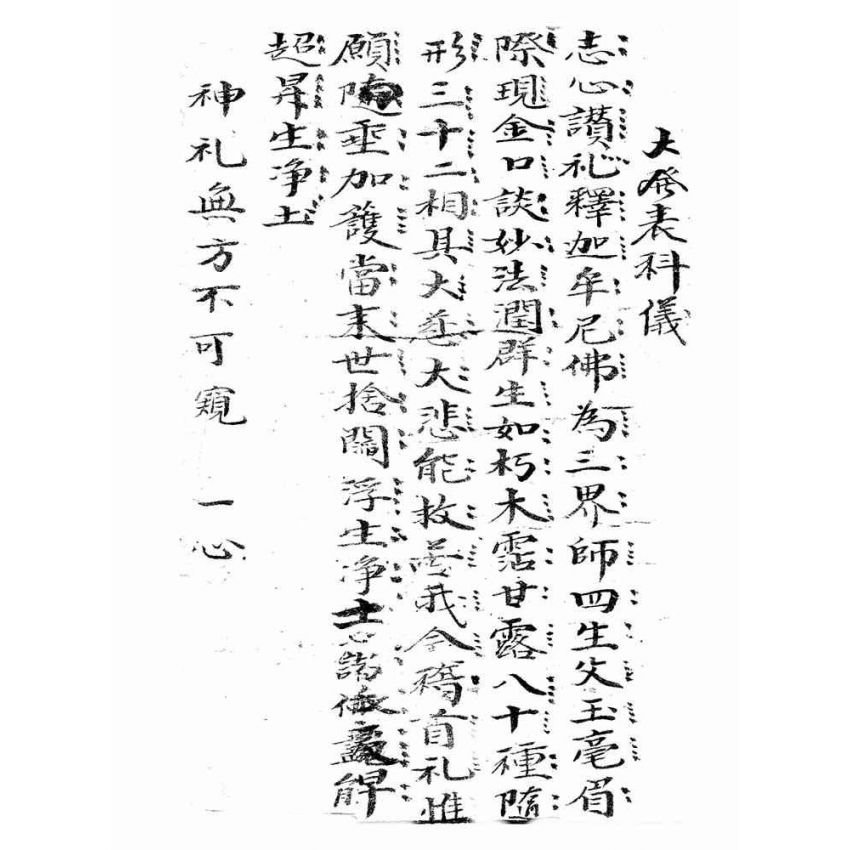 大發表科儀
志心讃礼釋迦牟尼佛為三界師四生父玉毫眉
際現金口談妙法潤群生如朽木霑甘露八十種隨
形三十二相具大慈大悲能救苦我今稽首礼惟
願隨垂加護當末世捨閻浮生净土
超昇生净土
神礼無方不可窺 一心